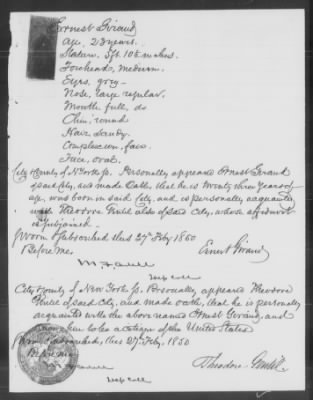 Ernest Giraud
Age, 23 years.
Stature, 5ft. 10½ inches.
Forehead, medium.
Eyes, grey
Nose, large regular.
Mouth full, do
Chin, round
Hair Sandy.
Complexion, fair.
Face, oval.
City & County of N York ss. Personally appeared Ernest Giraud
of said city, and made Oath, that he is twenty three years of
age, was born in said City, and is personally acquainted
with Theodore also of said City, whose affidavit
is subjoined.
Sworn & Subscribed this 27th Feby 1850
Before Me, Ernest Giraud
City & County of New York ss. Personally, appeared Theodore
of said city, and made oath, that he is personally
acquainted with the above named Ernest Giraud, and
him to be a citizen of the United States
this 27th Feby, 1850
Before me
Theodore